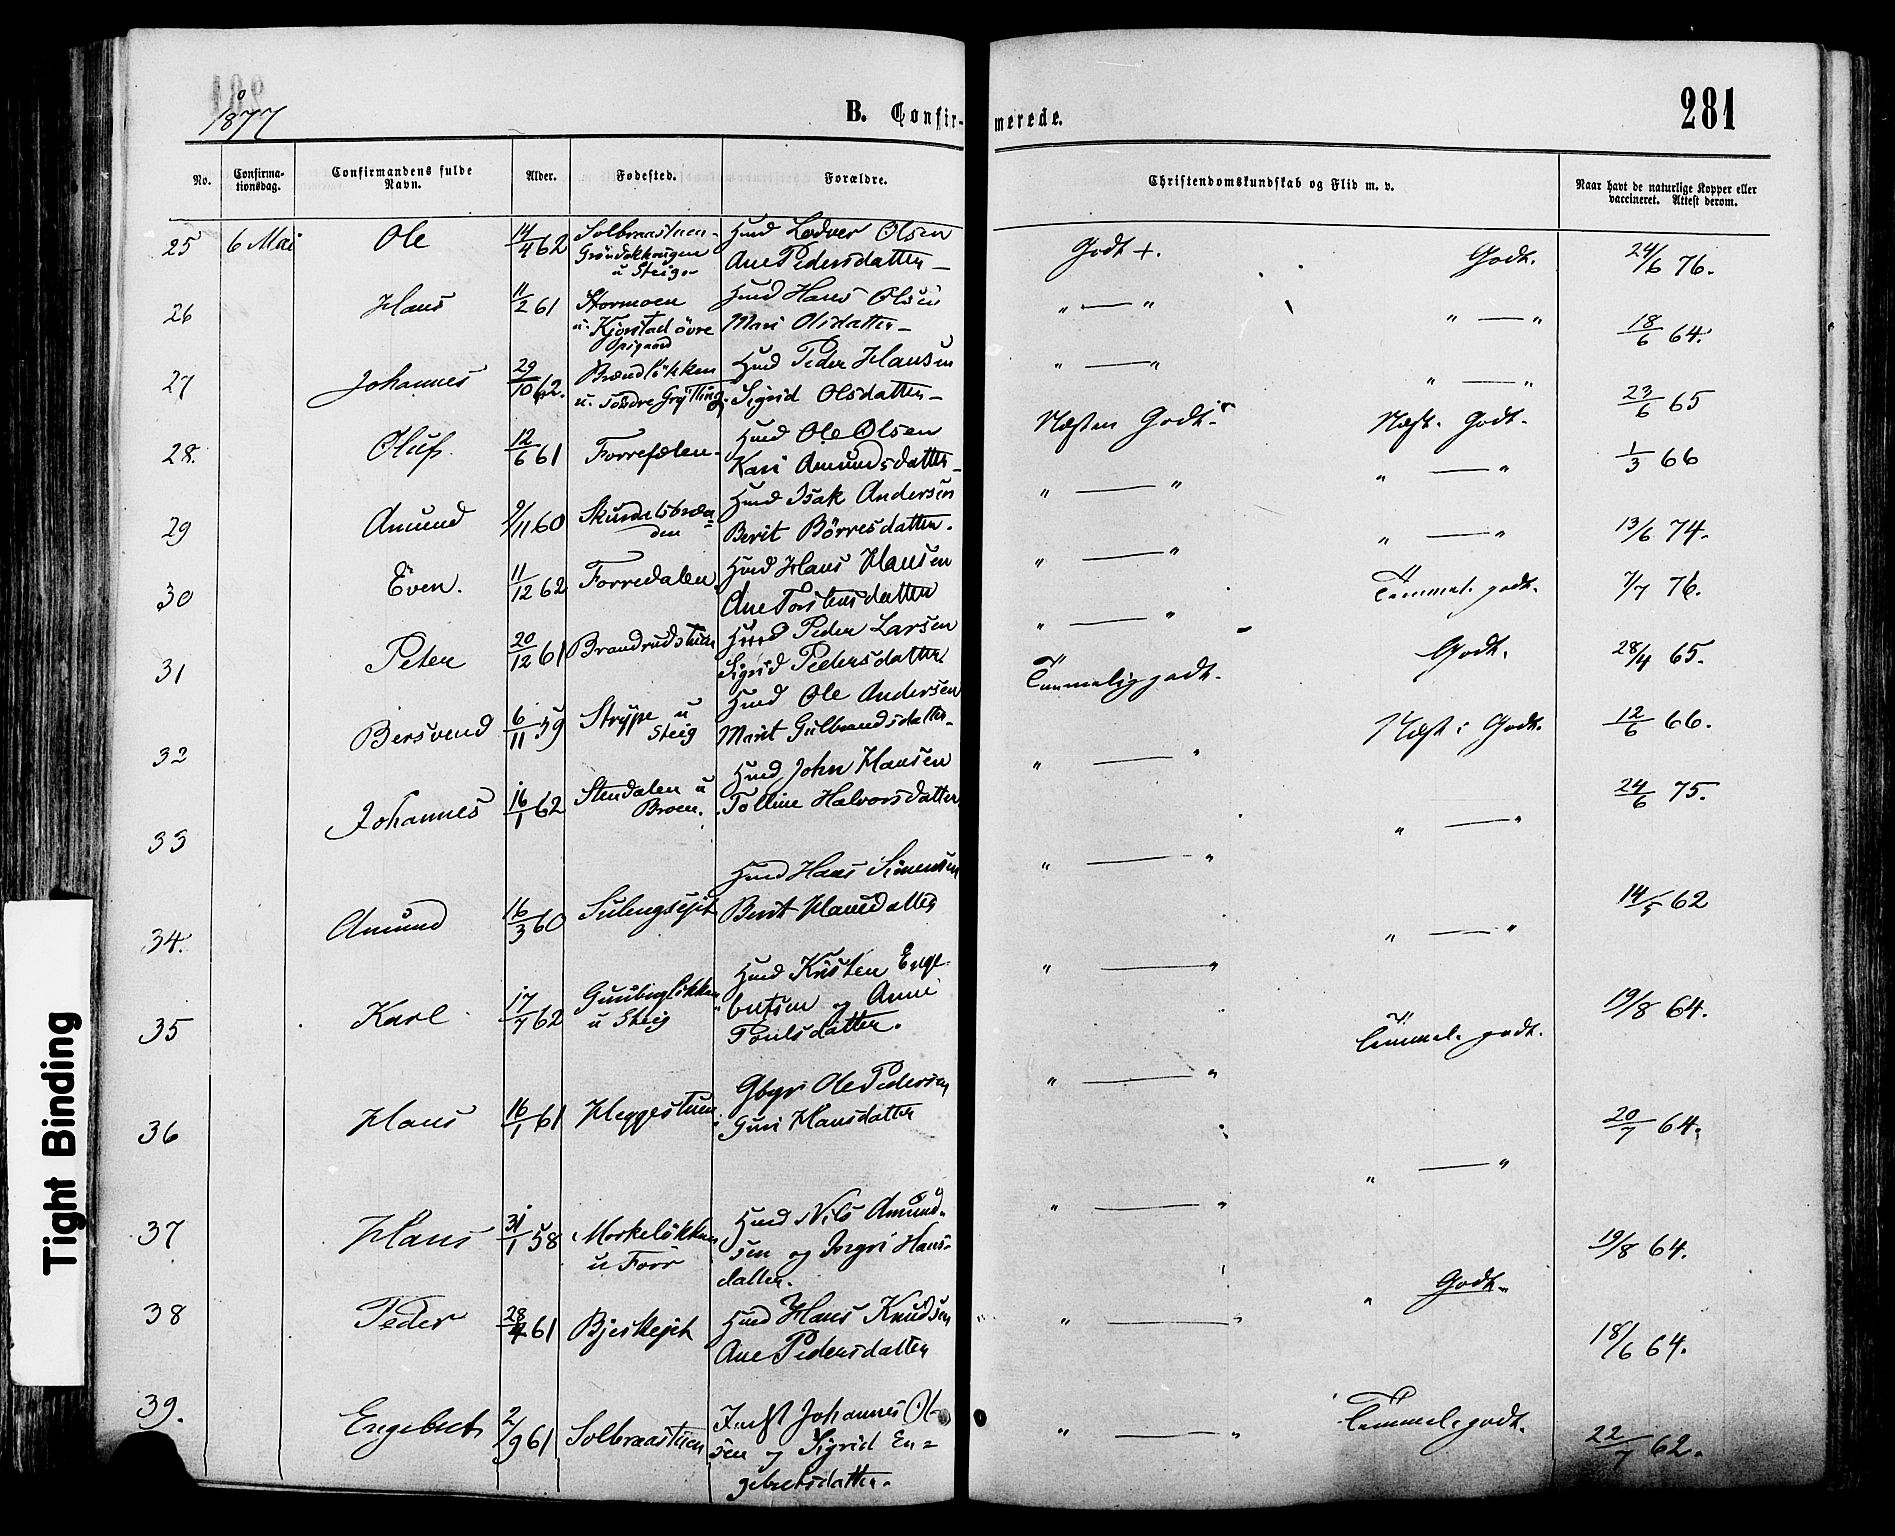 1877
B. Confir-merede.
281
No.
Confirma-
tionsdag.
Confirmandens fulde
Navn.
Alder.
Fødested.
Forældre.
Christendomskundskab og Flid m. v.
Naar havt de naturlige Kopper eller
vaccineret. Attest derom.
25 6 Mai Ole 14/4 62 Solbraastuen- Husmd Ole Olsen Godt +. Godt. 24/6 76.
u Steig- Ane Pedersdatter-
26 Hans 11/2 61 Stormoen Husmd Hans Olsen " — " " — " 18/6 64.
u. Kjorstad øvre Mari Olsdatter-
Opigaard
27 Johannes 29/10 62. Brændløkken Husmd Peder Hansen " — " " — " 23/6 65
u. Søndre Grytting Sigrid Olsdatter-
28. Oluf. 12/6 61 Forrefalen- Husmd Ole Olsen Næsten Godt. Næst. Godt. 1/3 66
Kari Amundsdatter-
29 Amund 9/11 60 Husmd Isak Andersen " — " " — " 13/6 74.
Berit Børresdatter.
30 Even. 11/12 62 Forredalen Husmd Hans Hansen " — " Temmel. godt. 7/7 76.
Ane Torstensdatter
31 Peter 20/12 61 Brandrudstuen Husmd Peder Larsen " — " Godt. 28/4 65.
Sigrid Pedersdatter
32 Bersvend 6/11 59 Strype u Husmd Ole Andersen Temmelig godt. Næst: Godt. 12/6 66.
Steig Marit Gulbrandsdatter-
33 Johannes 16/1 62 Stendalen u Husmd John Hansen " — " " — " 24/6 75.
Broen. Tolline Halvorsdatter
34. Amund 16/3 60 Sulengsejet Husmd Hans Simensen " — " " — " 14/5 62
Berit Hansdatter
35 Karl 17/7 62 Husmd Kristen Enge- " — " Temmel. godt. 19/8 64.
u Steig bretsen og Anne
Poulsdatter.
36 Hans 16/1 61 Heggestuen Gbgr Ole Pedersen " — " " — " 20/7 64.
Guri Hansdatter
37 Hans 31/1 58 Morkeløkken Husmd Nils Amund- " — " " Godt. 19/8 64.
u Forr sen og Ingri Hans-
datter.
38 Peder 28/4 61 Husmd Hans Knudsen " — " 18/6 64.
Ane Pedersdatter
39. Engebret 2/9 61 Solbraastuen Inderst Johannes Ol- " — " Temmel. godt. 22/7 62.
sen og Sigrid En-
gebretsdatter.
Tight Binding